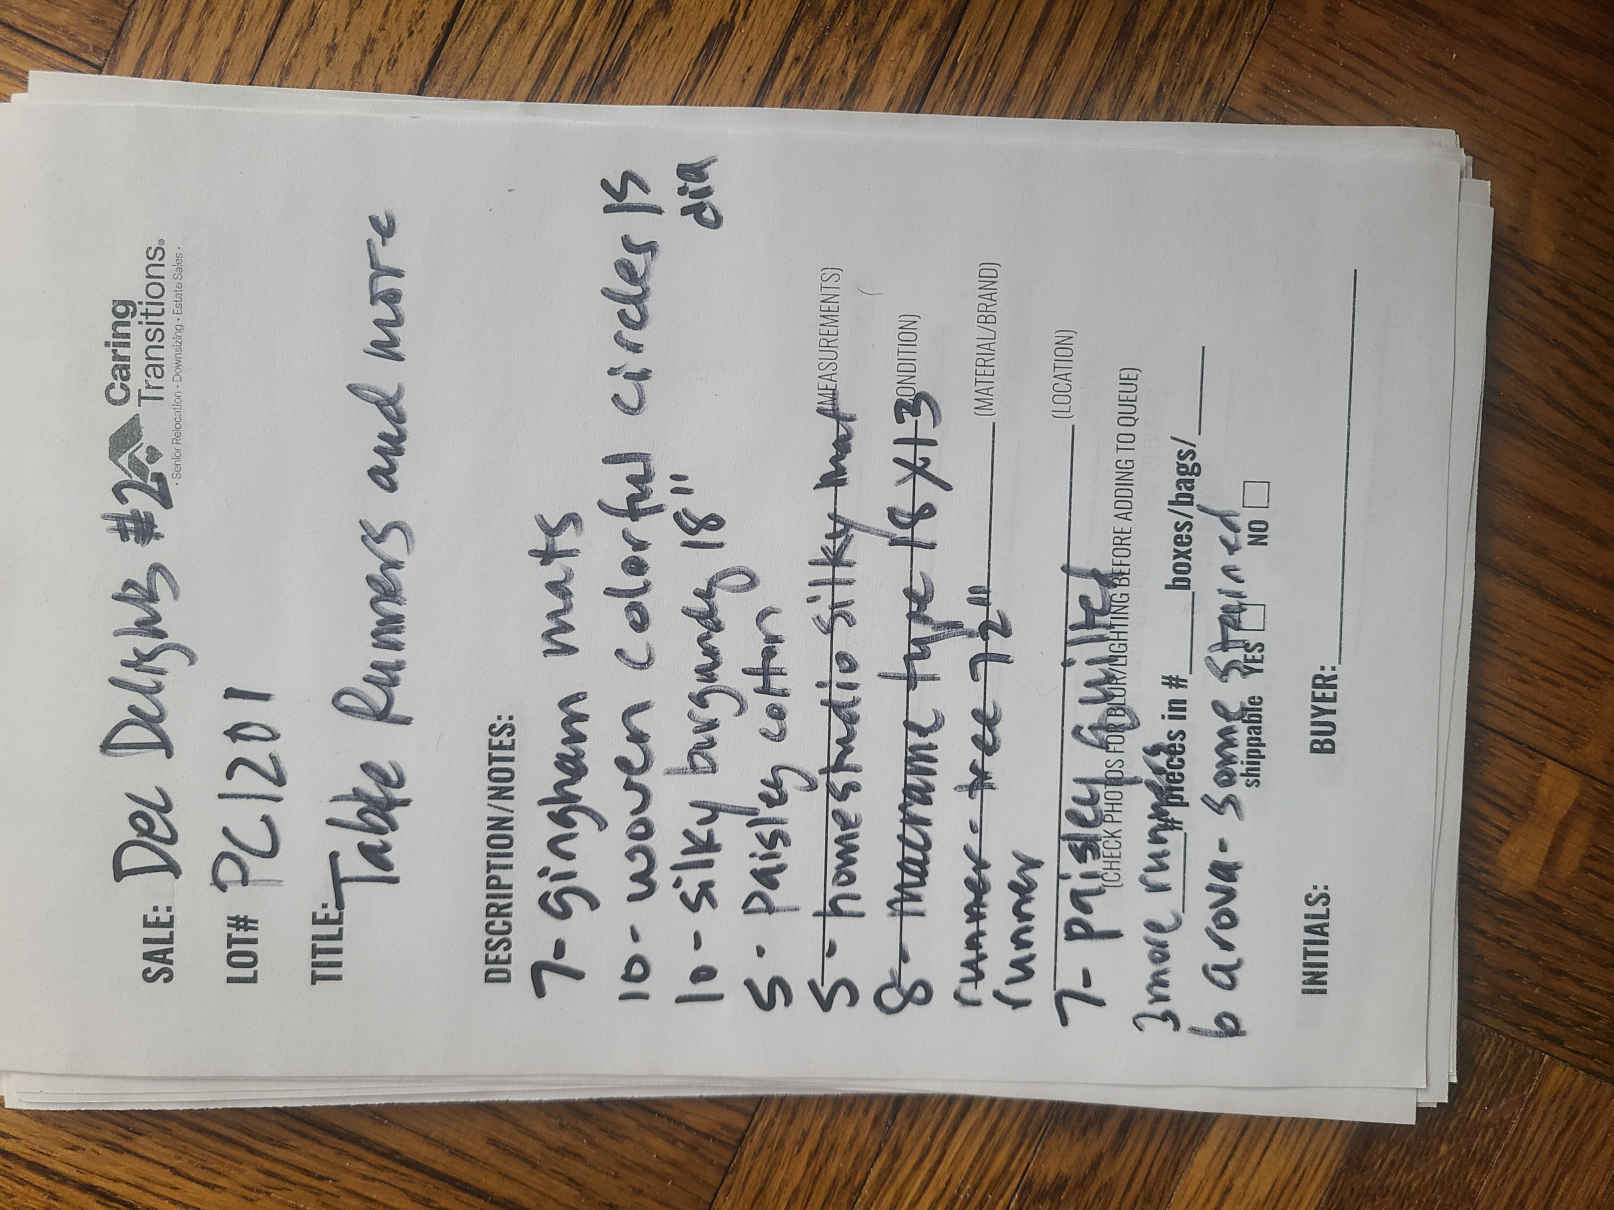 SALE: Dec Delights #2
Caring
Transitions®
• Senior Relocation • Downsizing • Estate Sales •
LOT# PC1201
TITLE: Table Runners and more
DESCRIPTION/NOTES:
7- gingham mats
10- woven colorful circles 15
dia
10- silky burgundy 18"
5- Paisley cotton
5- homestudio silky mat (MEASUREMENTS)
8- macrame type 18 x 13 (CONDITION)
runner- tree 72" (MATERIAL/BRAND)
runner
7- paisley quilted (LOCATION)
(CHECK PHOTOS FOR BLUR/LIGHTING BEFORE ADDING TO QUEUE)
3 more runners
#pieces in # boxes/bags/
6 arova- some stained
shippable YES NO
INITIALS: BUYER: